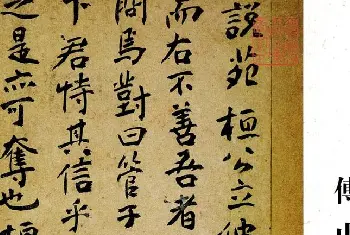 說苑桓公立仲
而右不善吾者
問焉對曰管子
下君恃其信乎
之是亦可奪也桓
傅山